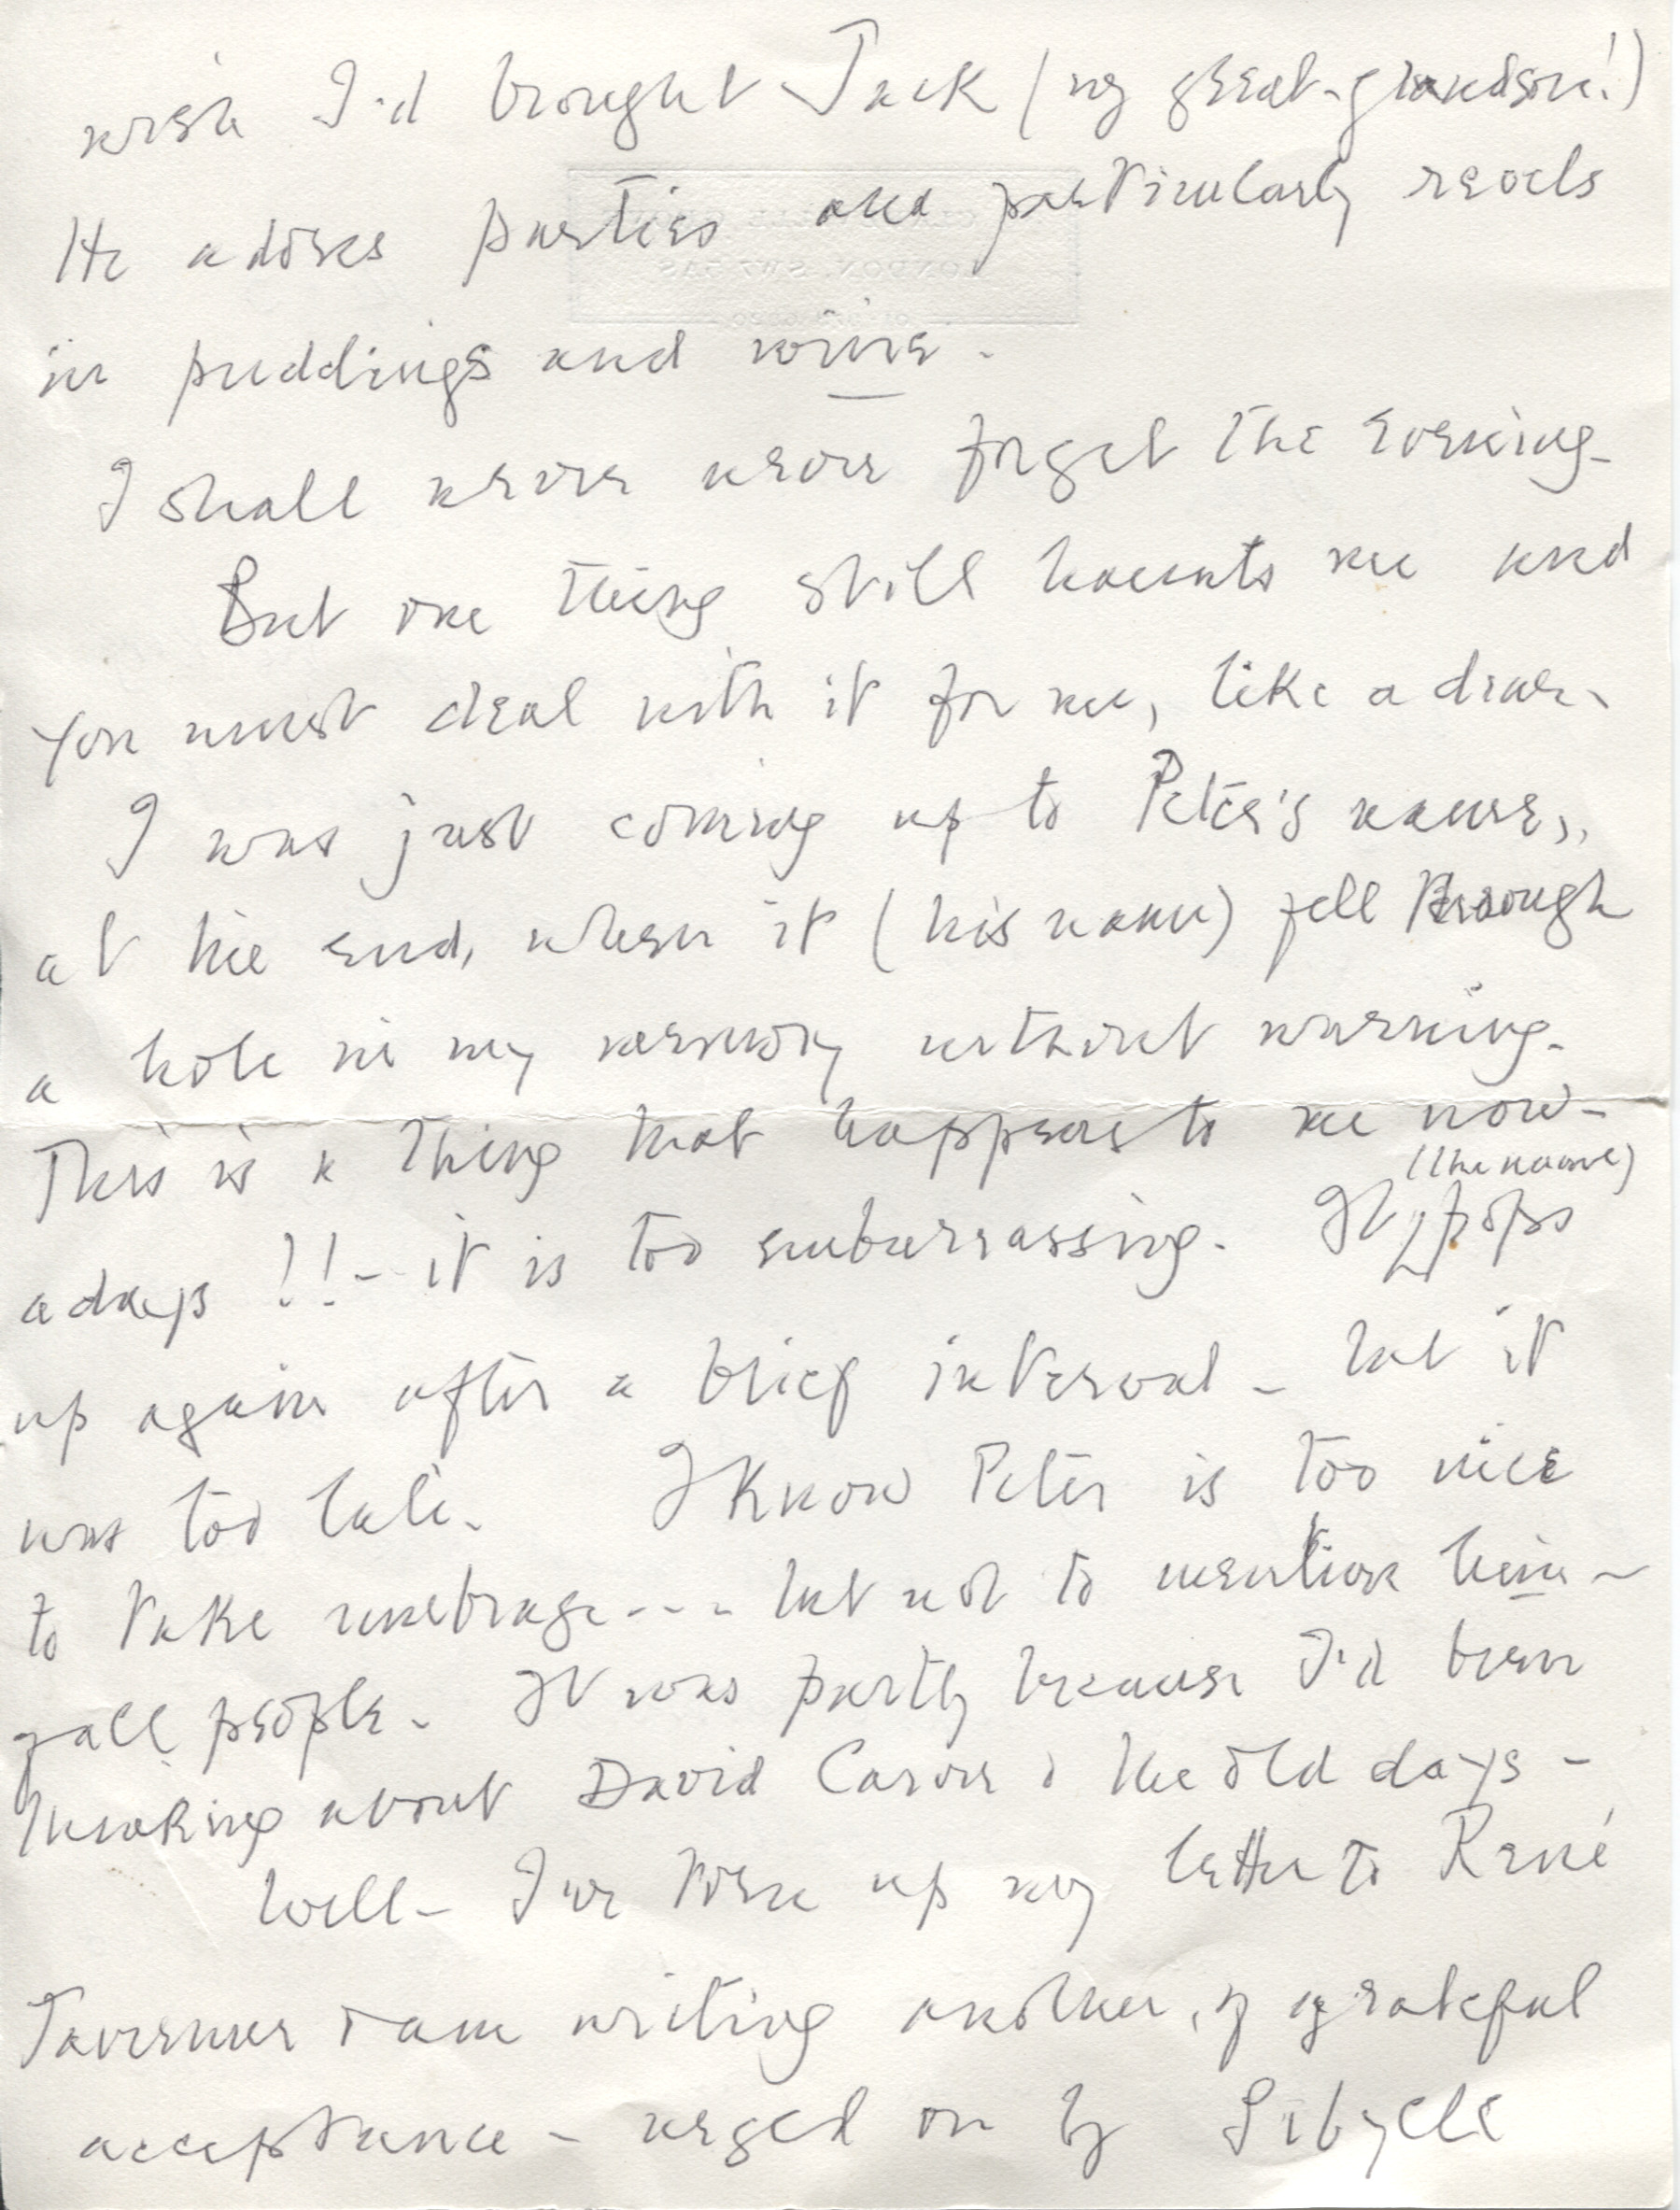 wish I'd brought Jack (my great-grandson!)
He adores parties and particularly revels
in puddings and wine.
I shall never never forget the evening.
But one thing still haunts me and
you must deal with it for me, like a dear.
I was just coming up to Peter's name,
at the end, when it (his name) fell through
a hole in my memory without warning.
This is a thing that happens to me now-
(the name)
adays!!- it is too embarrassing. It pops
up again after a brief interval - but it
was too late. I know Peter is too nice
to take umbrage---- but not to mention him -
of all people. It was partly because I'd been
thinking about David Carver & the old days -
Well - I've torn up my letter to René
Tavernier & am writing another, of grateful
acceptance - urged on by Sibylle
LONDON. SW7 5AS